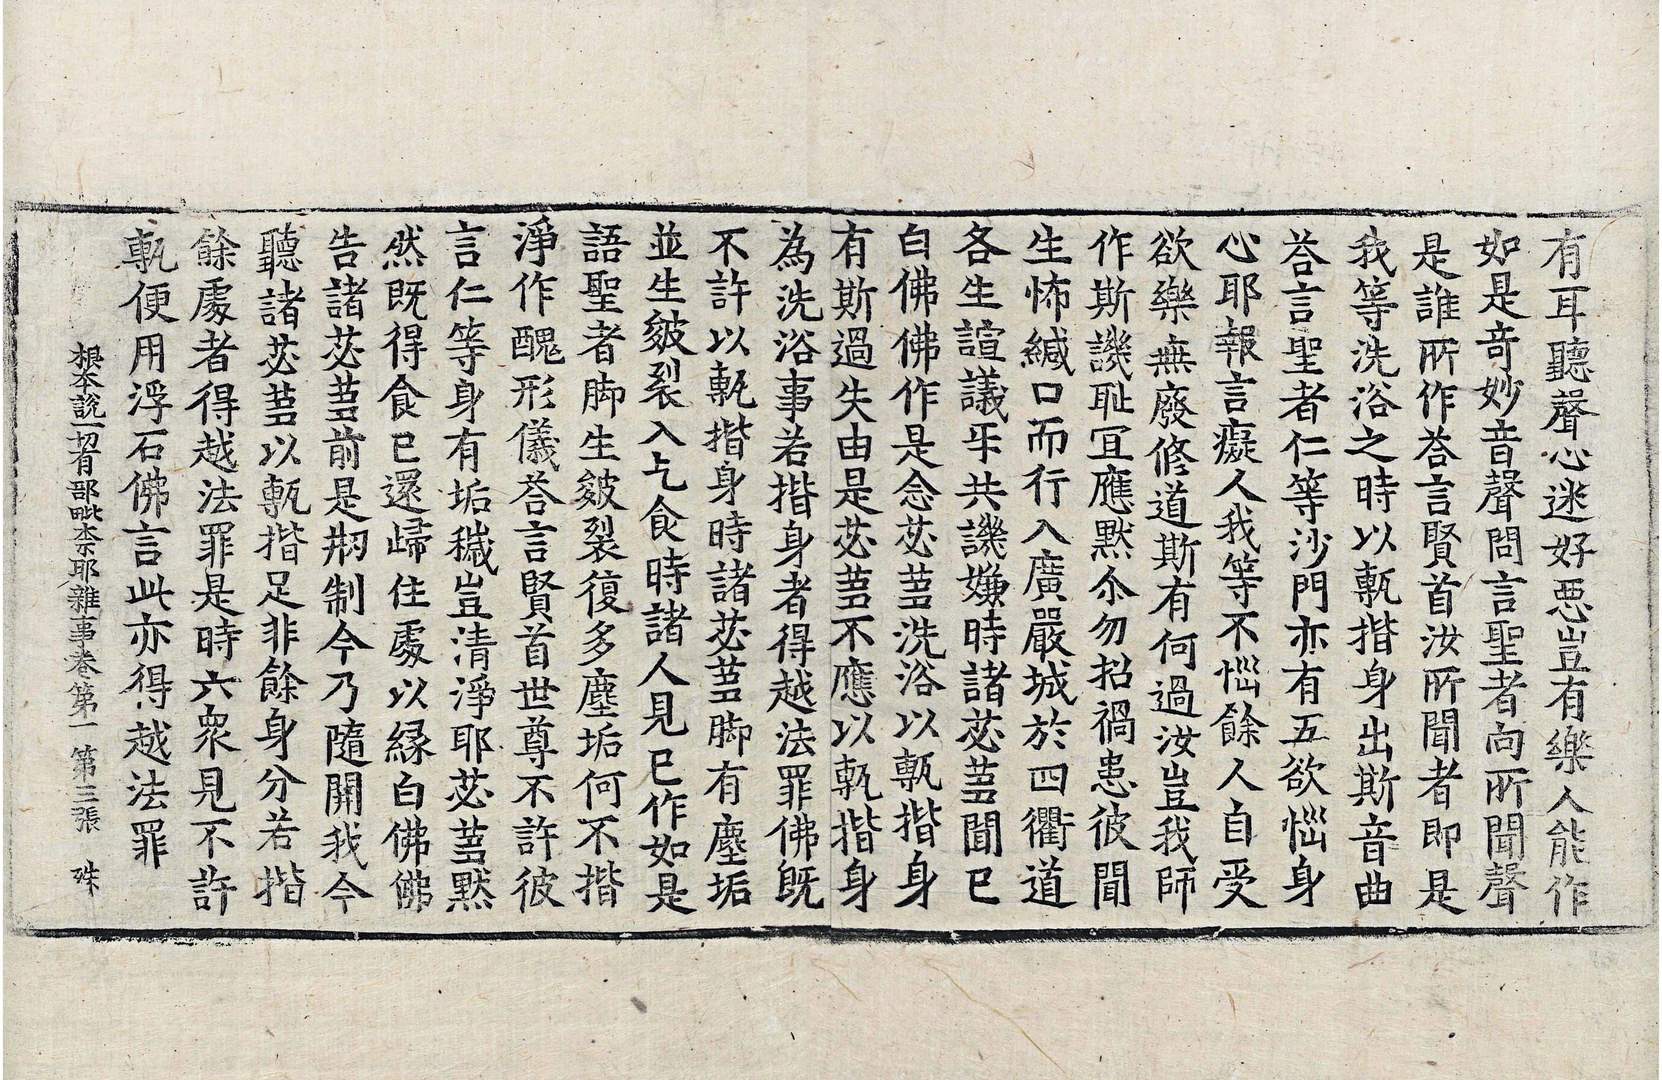 有耳聽聲心迷好惡豈有樂人能作
如是奇妙音聲問言聖者向所聞聲
是誰所作荅言賢首汝所聞者即是
我等洗浴之時以甎揩身出斯音曲
荅言聖者仁等沙門亦有五欲惱身
心耶報言癡人我等不惱餘人自受
欲樂無廢修道斯有何過汝豈我師
作斯譏耻冝應默尒勿招禍患彼聞
生怖緘口而行入廣嚴城於四衢道
各生諠議乐共譏嫌時諸苾蒭聞已
白佛佛作是念苾蒭洗浴以甎揩身
有斯過失由是苾蒭不應以甎揩身
為洗浴事若揩身者得越法罪佛既
不許以甎揩身時諸苾蒭脚有塵垢
並生皴裂入乞食時諸人見已作如是
語聖者脚生皴裂復多塵垢何不揩
淨作醜形儀荅言賢首世尊不許彼
言仁等身有垢穢豈清淨耶苾蒭默
然既得食已還歸住處以緣白佛佛
告諸苾蒭前是剏制今乃隨開我今
聽諸苾蒭以甎揩足非餘身分若揩
餘處者得越法罪是時六衆見不許
甎便用浮石佛言此亦得越法罪
根本說一切有部毗柰耶雜事卷第一 第三張 殊